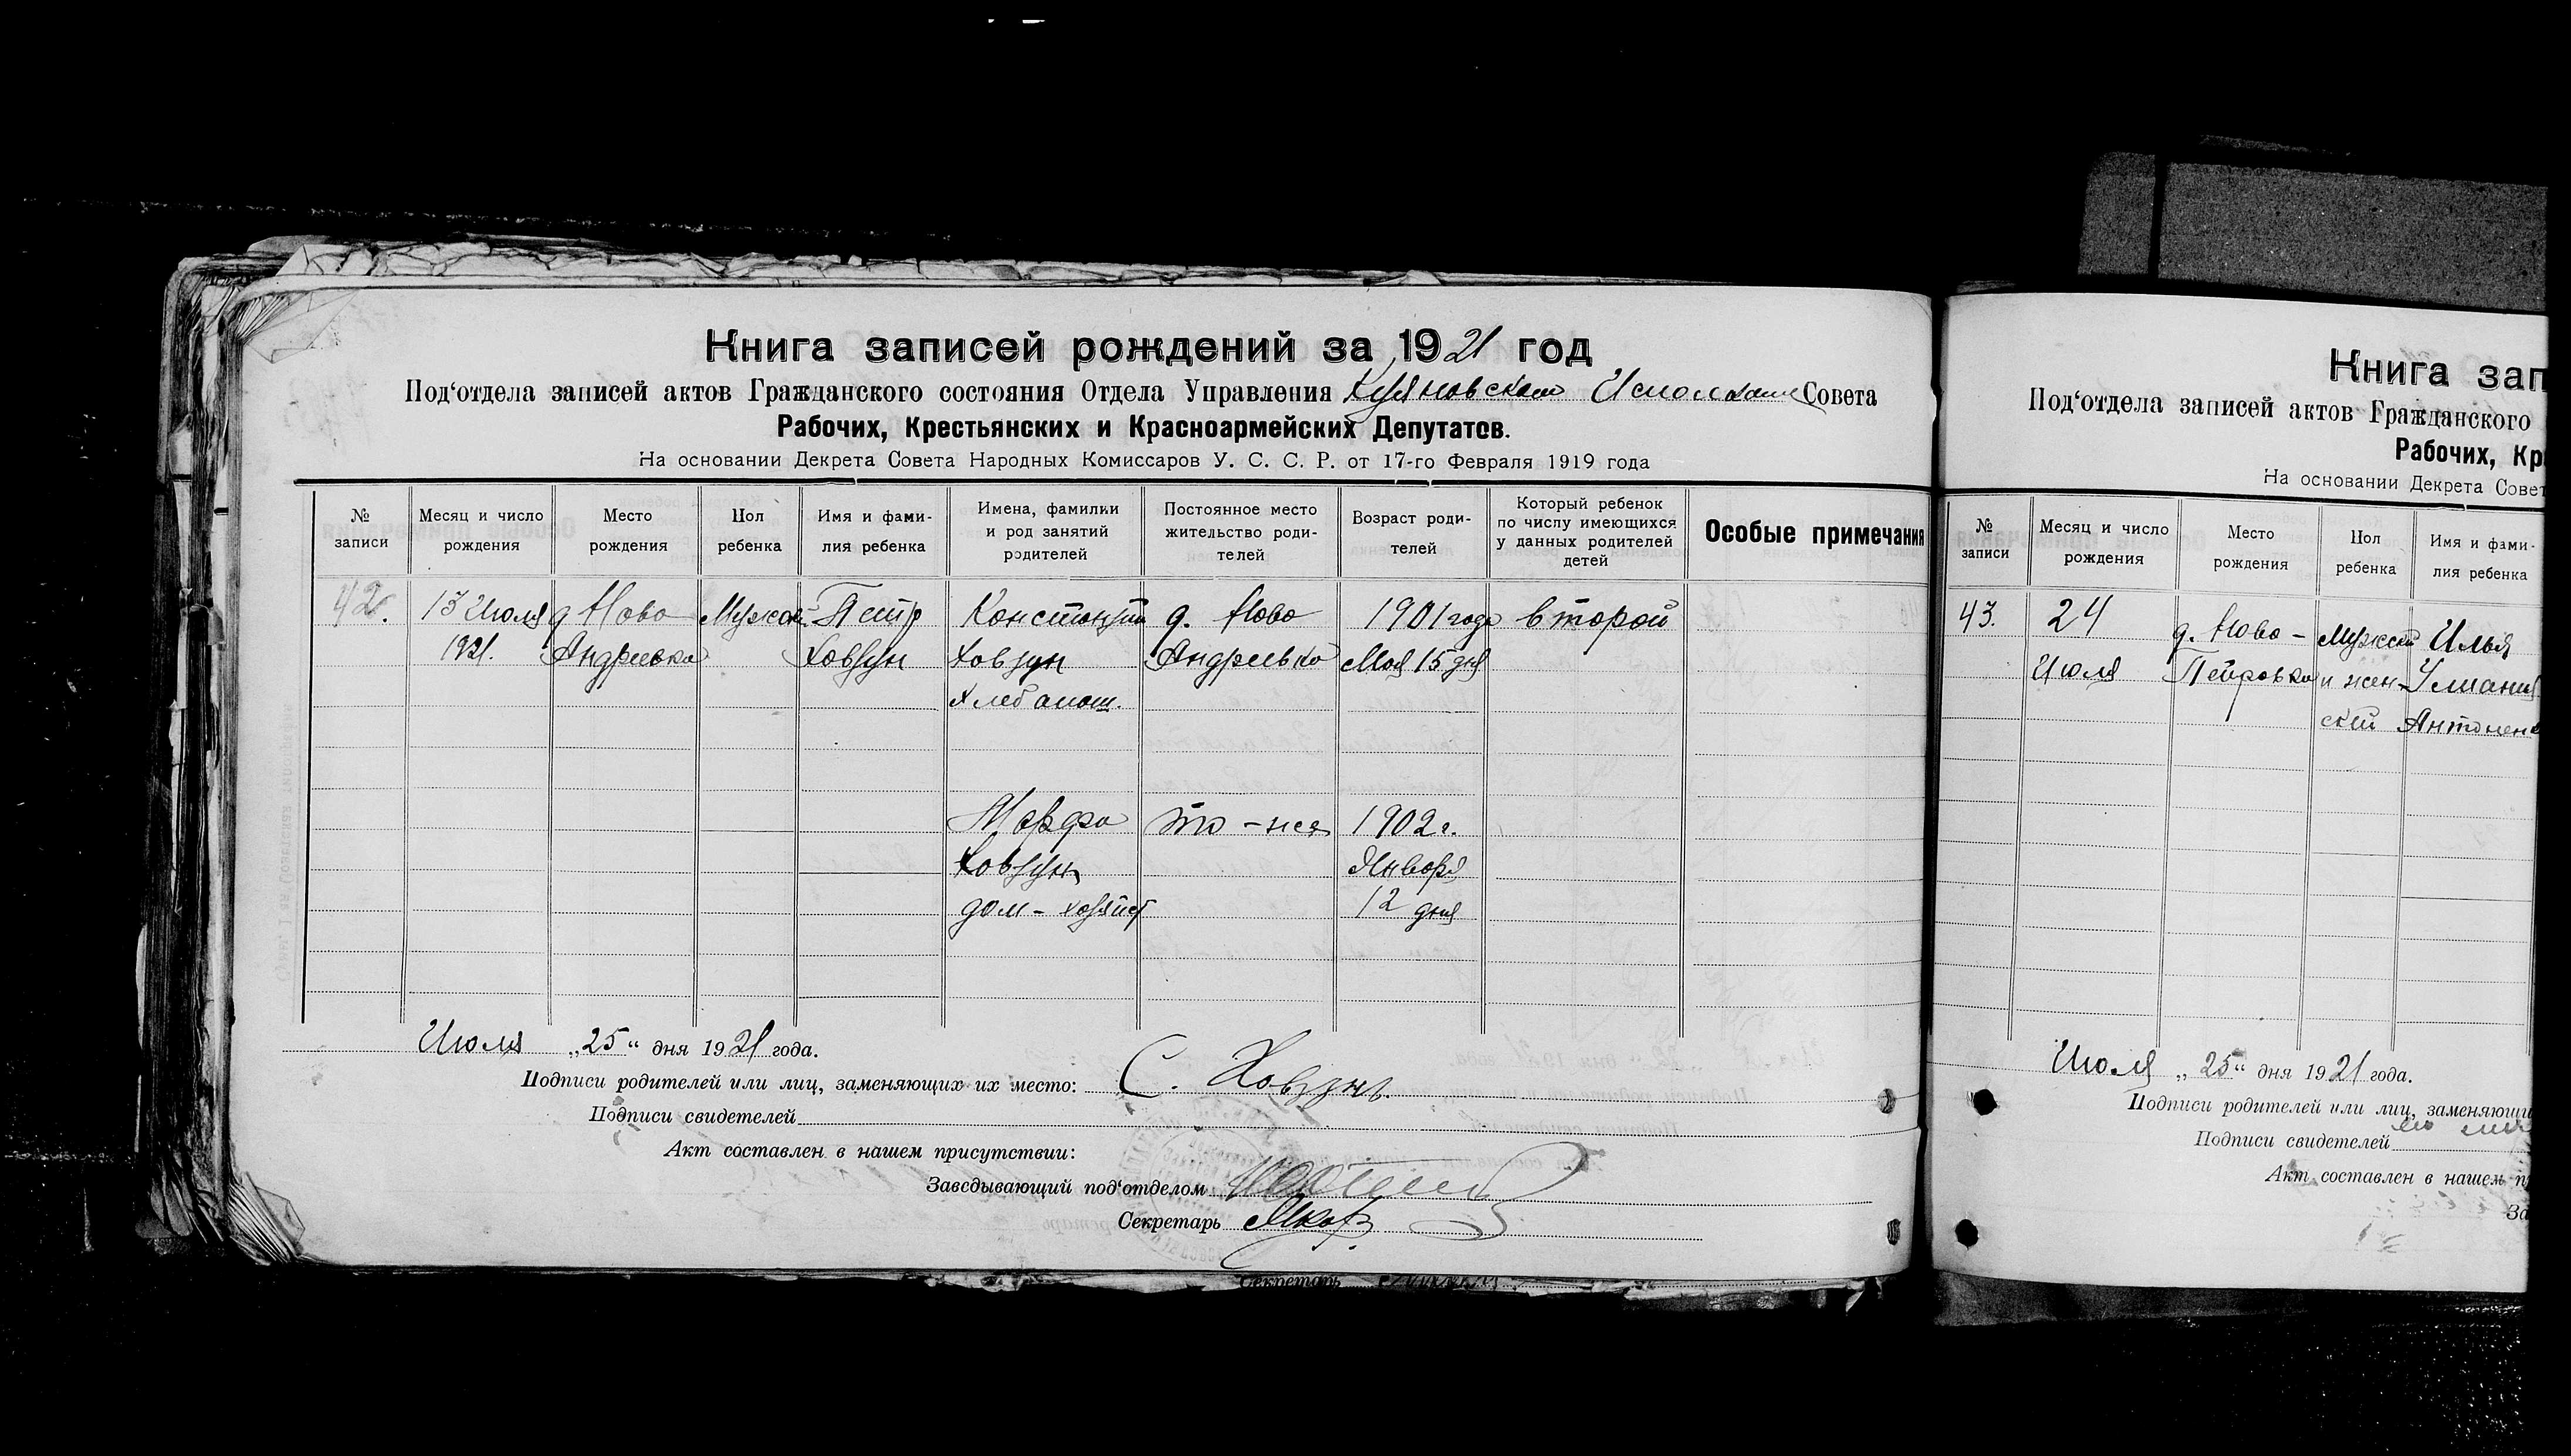 Книга записей рождений за 1921 год
Под‘отдела записей актов Гражданского состояния Отдела Управления Совета
Рабочих, Крестьянских и Красноармейских Депутатов.
На основании Декрета Совета Народных Комиссаров У. С. С. Р. от 17-го Февраля 1919 года
№ записи
Месяц и число рождения
Место рождения
Пол ребенка
Имя и фами-
лия ребенка
Имена, фамилии
и род занятий
родителей
Постоянное место
жительство роди-
телей
Возраст роди-
телей
Который ребенок
по числу имеющихся
у данных родителей
детей
Особые примечания
42.
13 Июля
1921.
д Ново
Андреевка
Мужской
Петр
Ховзун
Ховзун
д. Ново
Андреевка
1901 года
Мая 15 дня
второй
Марфа
Ховзун
дом-
то-же
1902 г.
Января
12 дня
Июля „25“ дня 1921 года.
Подписи родителей или лиц, заменяющих их место: С. Ховзунъ.
Подписи свидетелей
Акт составлен в нашем присутствии:
Заведывающий под‘отделом
Секретарь
Секретарь
Книга зап
Под‘отдела записей актов Гражданского
Рабочих, Кр
На основании Декрета Совет
№
записи
Месяц и число
рождения
Место
рождения
Пол
ребенка
Имя и фами-
лия ребенка
43.
24
Июля
д. Ново-
Петровка
и жен-
ский
Илья
Июля „25“ дня 1921 года.
Подписи родителей или лиц, заменяющи
Подписи свидетелей
Акт составлен в нашем п
За